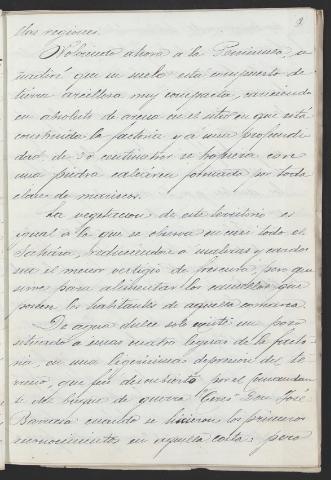 llas regiones.
Volviendo ahora a la Peninsula, a
ñadiré que su suelo está compuesto de
tierra arcillosa muy compacta, careciendo
en absoluto de agua en el sitio en que está
construida la factoria y á una profundi
dad de 30 centimetros se tropieza con
una piedra calcárea formada de toda
clase de mariscos.
La vegetacion de este territorio es
igual á la que se observa en casi todo el
Sahára, reduciendose a malezas y cardos
sin el menor vestigio de frescura, pero que
sirve para alimentar los camellos que
poseen los habitantes de aquella comarca.
De agua dulce solo existe un pozo
situado a unas cuatro leguas de la facto
ria, en una ligerisima depresion del te
rreno, que fué descubierto por el Comandan
te del buque de guerra "Ceres" Don José
Barrasa cuando se hicieron los primeros
reconocimientos en aquella costa; pero